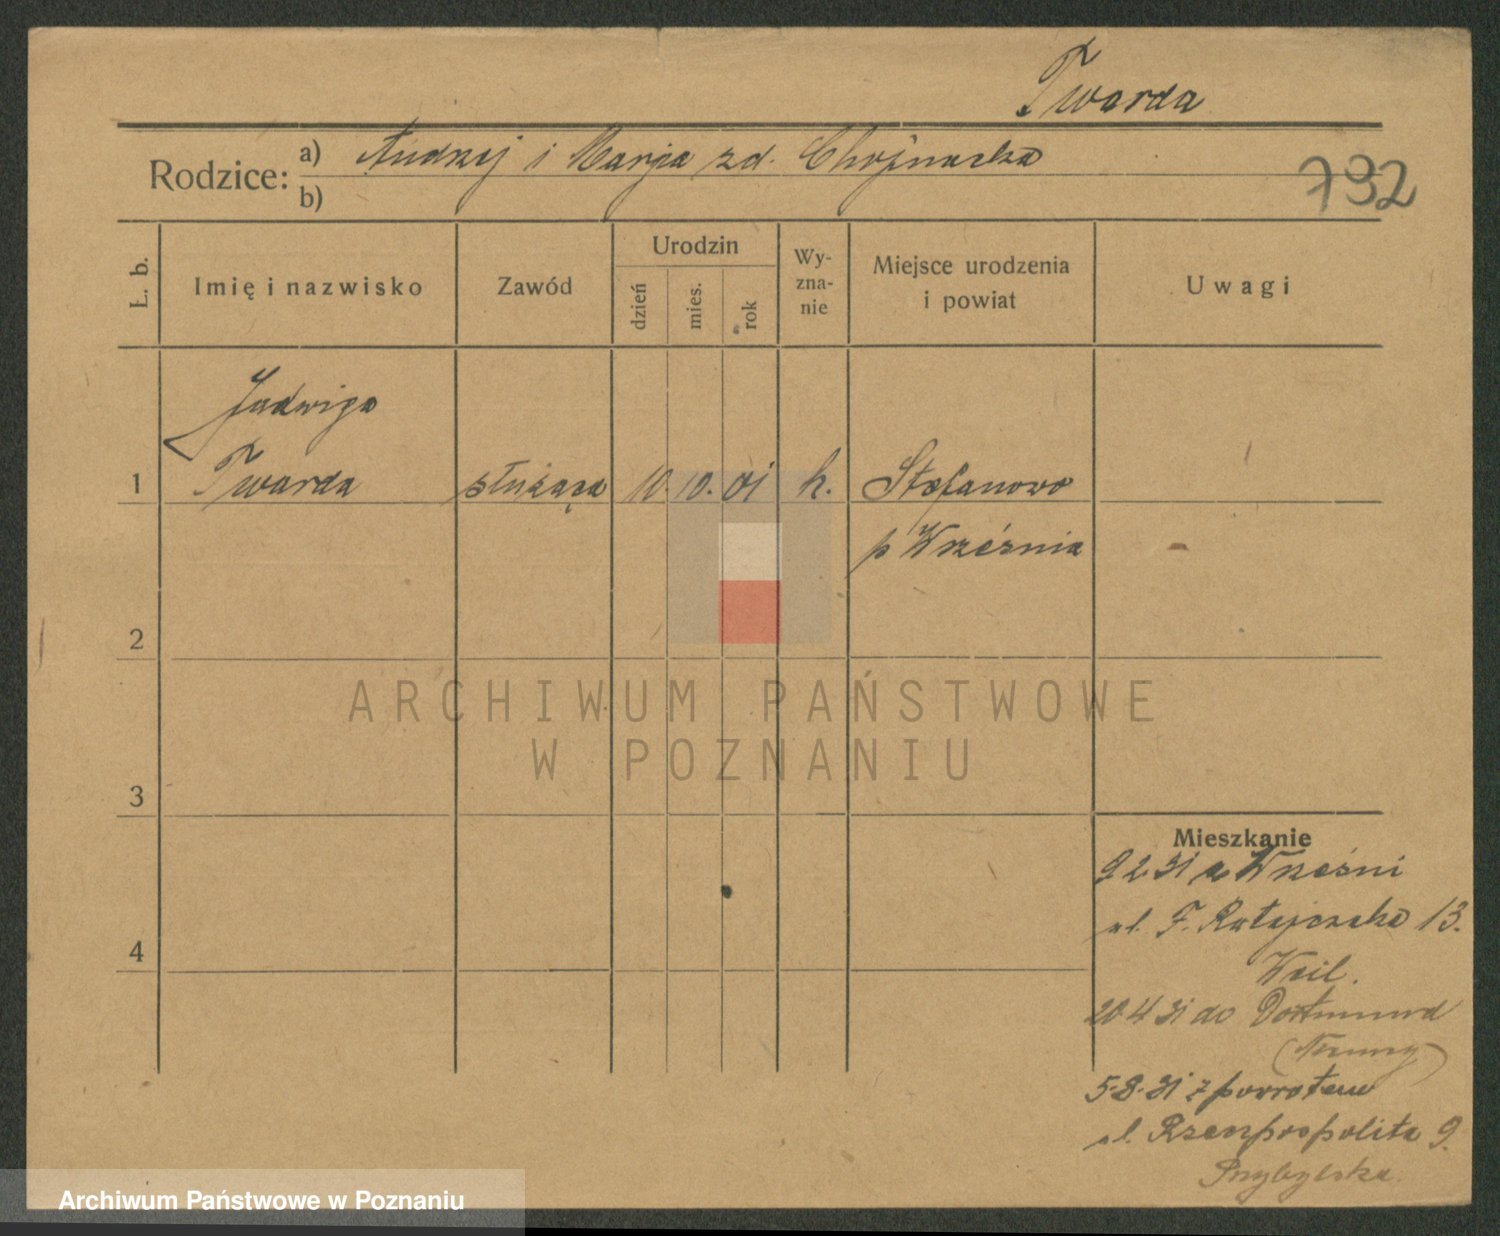 Twarda
Rodzice: a) Andrzej i Marja zd. Chojnacka
b)
792
L. b.
Imię i nazwisko
Zawód
Urodzin
dzień
mies.
rok
Wy-
zna-
nie
Miejsce urodzenia
i powiat
Uwagi
Jadwiga
1 Twarda służąca 10. 10. 01 k. Stefanowo
p Września
2
3
4
Mieszkanie
9 2 31 z Wrześni
ul. F. Ratajczaka 13.
Weil.
20 4 31 do Dortmund
(Niemcy)
5.8.31 z powrotem
ul. Rzeczpospolita 9.
Przybylska.
ARCHIWUM PAŃSTWOWE
W POZNANIU
Archiwum Państwowe w Poznaniu